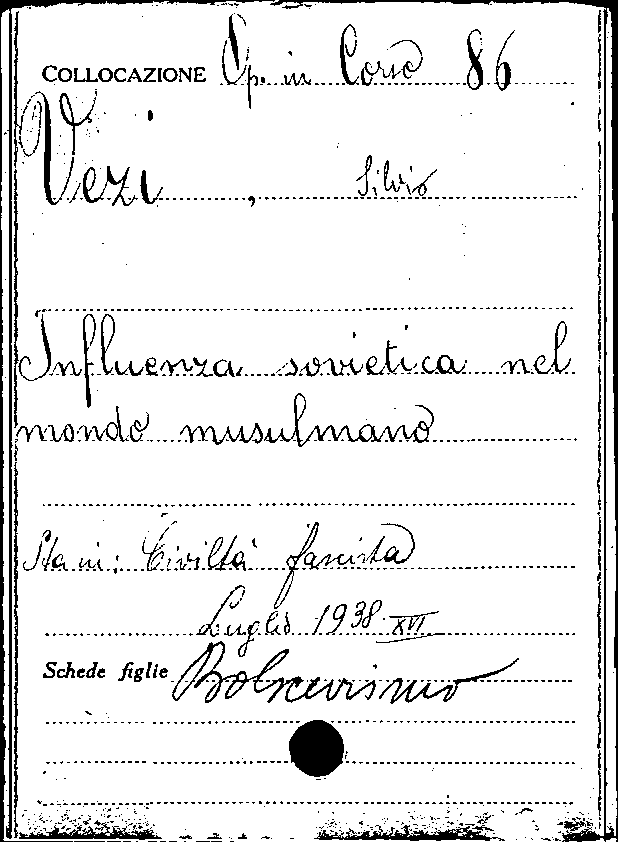 COLLOCAZIONE Op. in Corso 86
Vezi , Silvio
Influenza sovietica nel
mondo musulmano
Sta in: Civiltà fascista
Luglio 1938 XVI
Schede figlie Bolscevismo